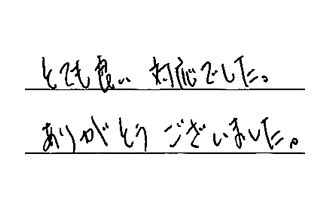 とても良い 対応でした。
ありがとう ございました。